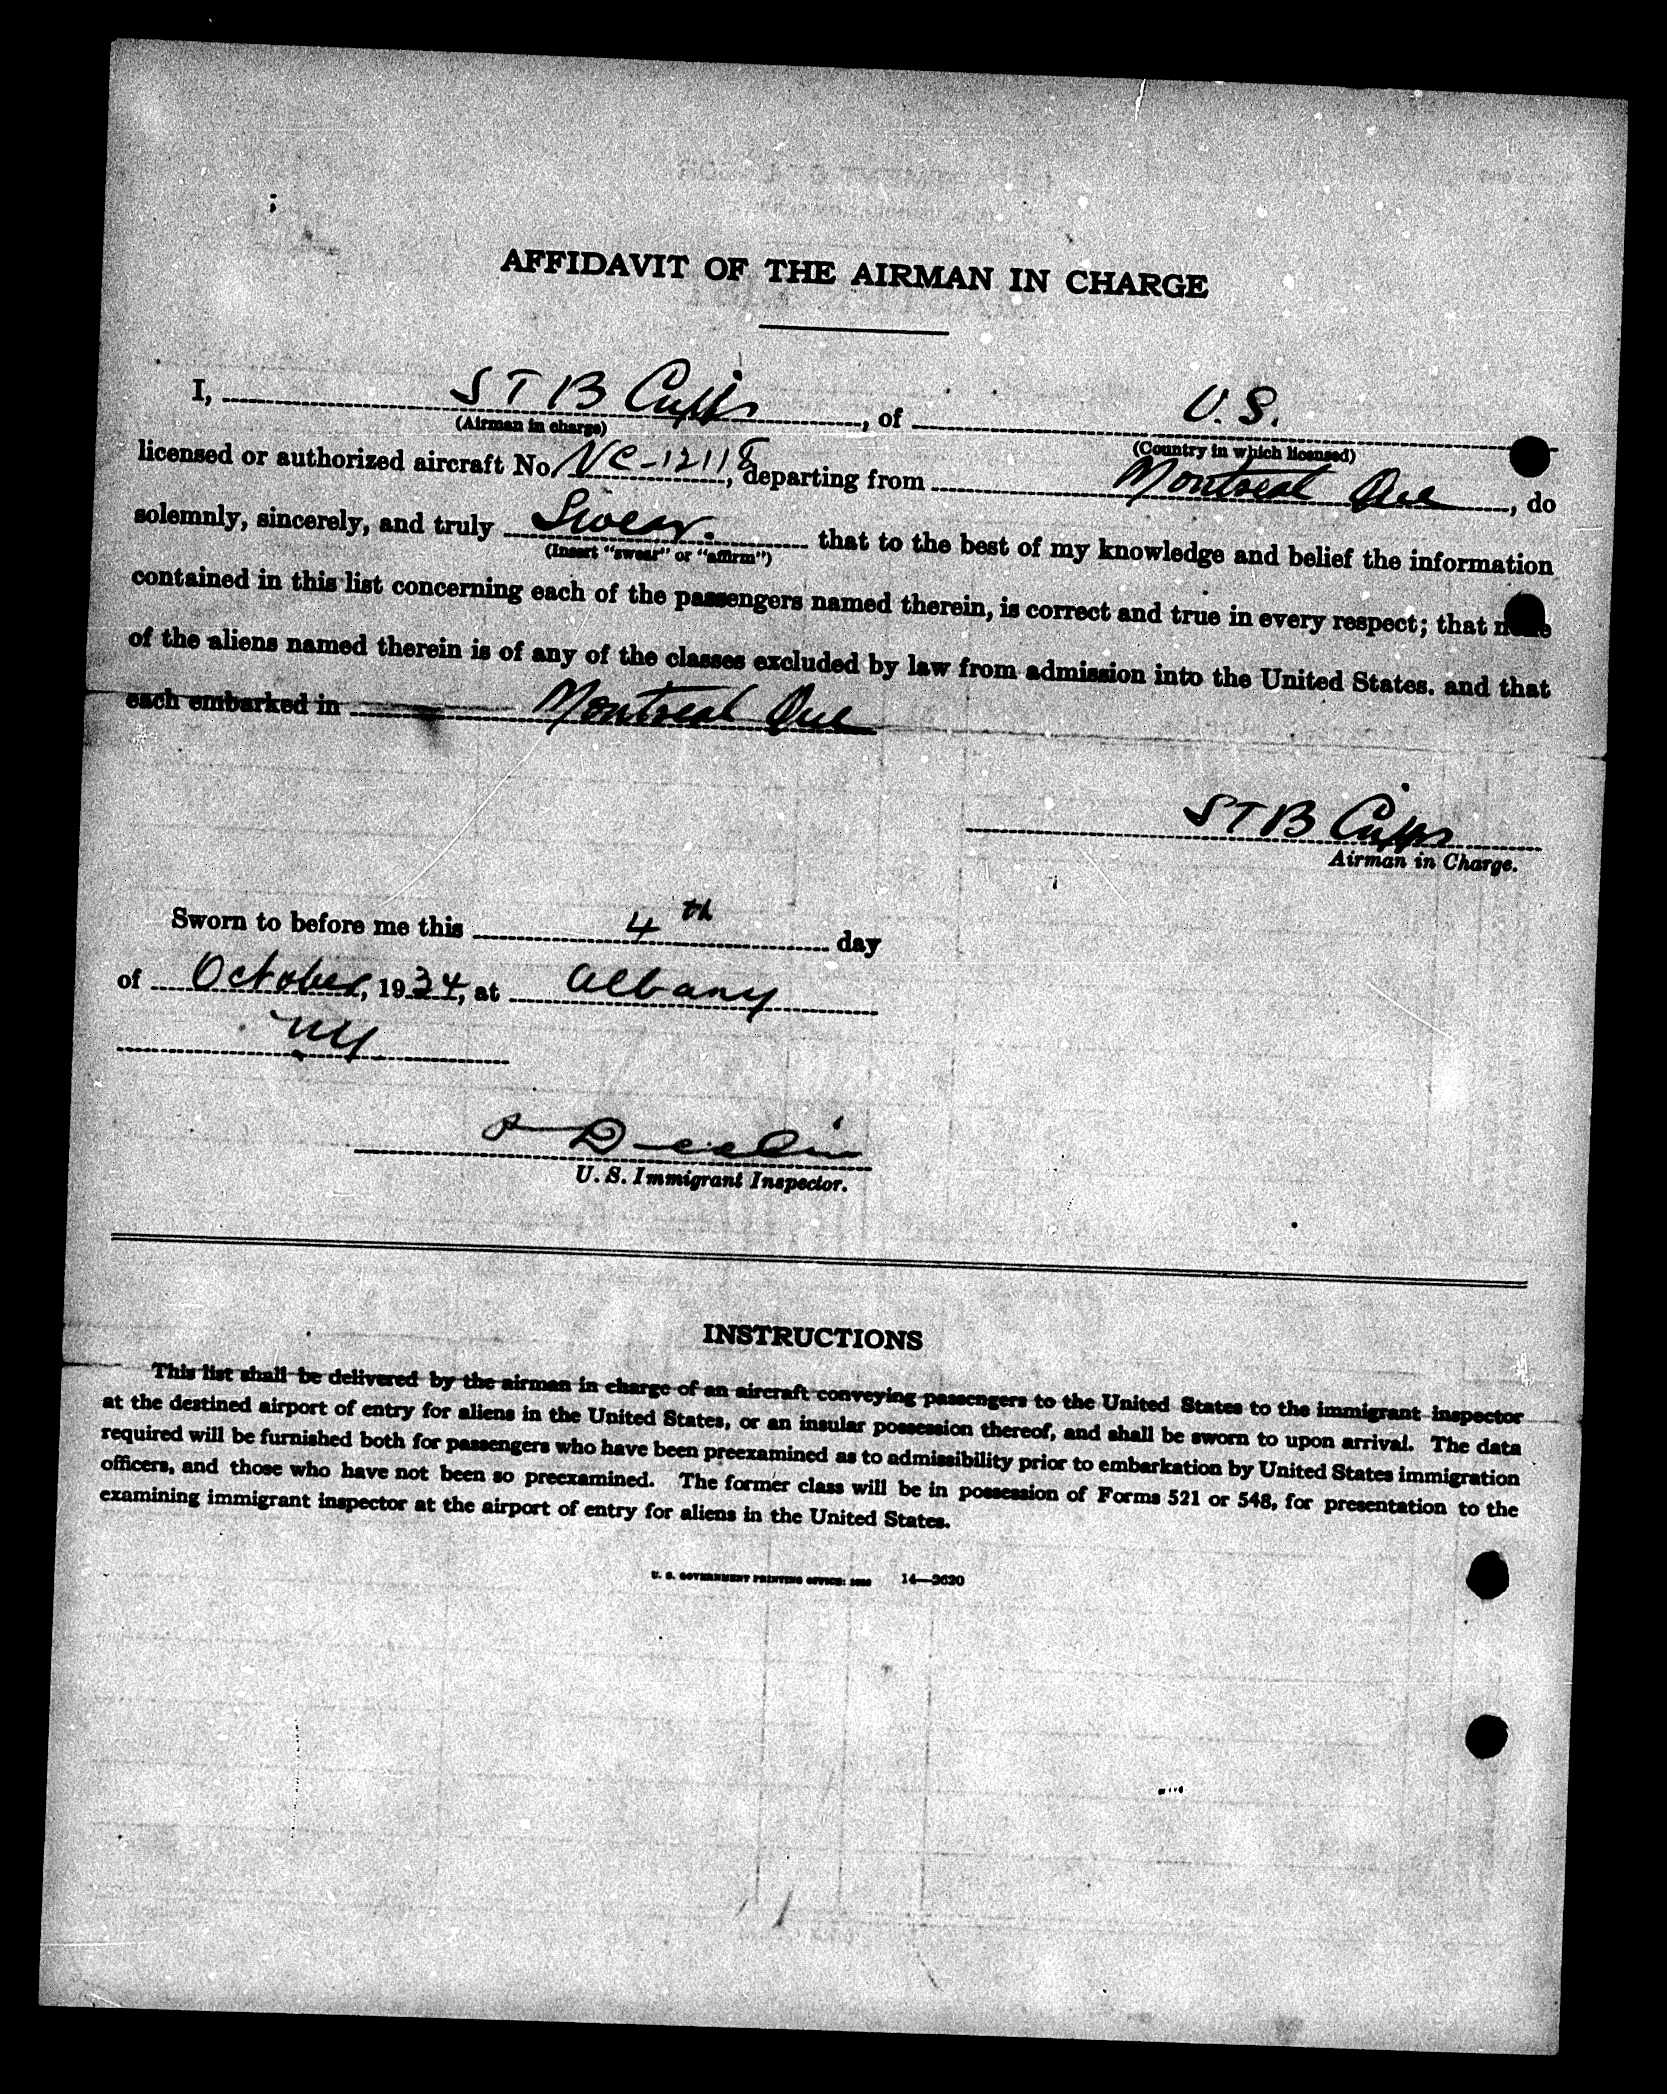 AFFIDAVIT OF THE AIRMAN IN CHARGE
I, S T B Cupps, of U. S.
(Airman in charge) (Country in which licensed)
licensed or authorized aircraft No. NC-12118, departing from Montreal Que, do
solemnly, sincerely, and truly Swear. that to the best of my knowledge and belief the information
(Insert "swear" or "affirm")
contained in this list concerning each of the passengers named therein, is correct and true in every respect; that none
of the aliens named therein is of any of the classes excluded by law from admission into the United States. and that
each embarked in Montreal Que
S T B Cupps
Airman in Charge.
Sworn to before me this 4th day
of October, 1934, at Albany
NY
U. S. Immigrant Inspector.
INSTRUCTIONS
This list shall be delivered by the airman in charge of an aircraft conveying passengers to the United States to the immigrant inspector
at the destined airport of entry for aliens in the United States, or an insular possession thereof, and shall be sworn to upon arrival. The data
required will be furnished both for passengers who have been preexamined as to admissibility prior to embarkation by United States immigration
officers, and those who have not been so preexamined. The former class will be in possession of Forms 521 or 548, for presentation to the
examining immigrant inspector at the airport of entry for aliens in the United States.
U. S. GOVERNMENT PRINTING OFFICE: 14—3620